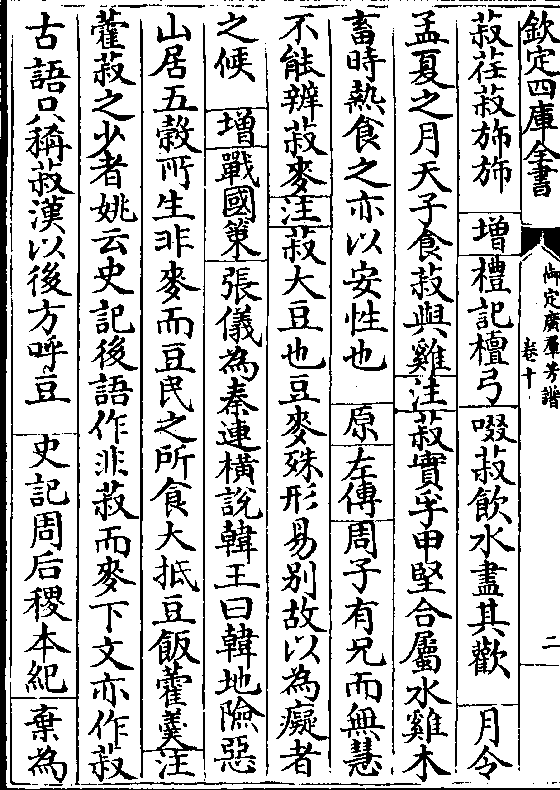 欽定四庫全書
御定廣群芳譜
卷十
二
菽荏菽斾斾　增禮記檀弓啜菽飲水盡其歡　月令
孟夏之月天子食菽與雞注菽實孚甲堅合屬水雞木
畜時熱食之亦以安性也　原左傳周子有兄而無慧
不能辨菽麥注菽大豆也豆麥殊形易别故以為癡者
之候　增戰國策張儀為秦連横說韓王曰韓地險惡
山居五穀所生非麥而豆民之所食大抵豆飯藿羮注
藿菽之少者姚云史記後語作非菽而麥下文亦作菽
古語只稱菽漢以後方呼豆　史記周后稷本紀棄為